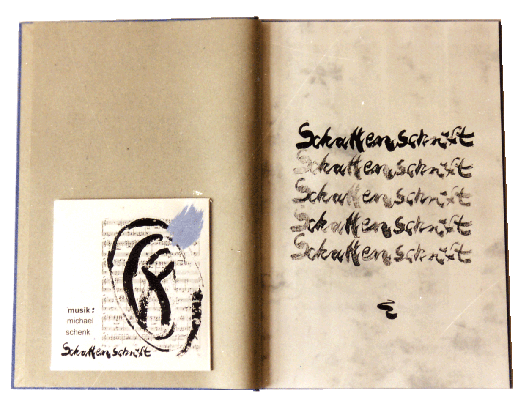 musik:
michael
schenk
Schattenschrift
Schattenschrift
Schattenschrift
Schattenschrift
Schattenschrift
Schattenschrift